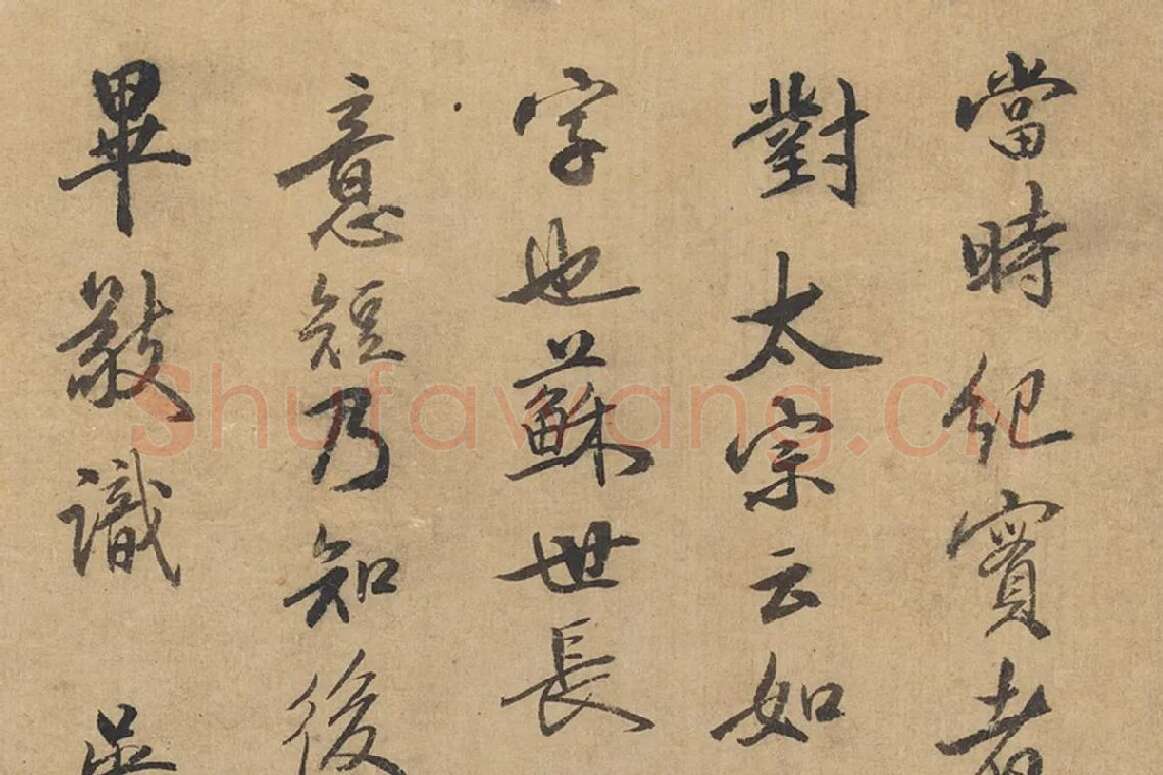 當時紀實者
對太宗云如
字也蘇世長
意短乃知後
畢敬識
Shufawang.cn